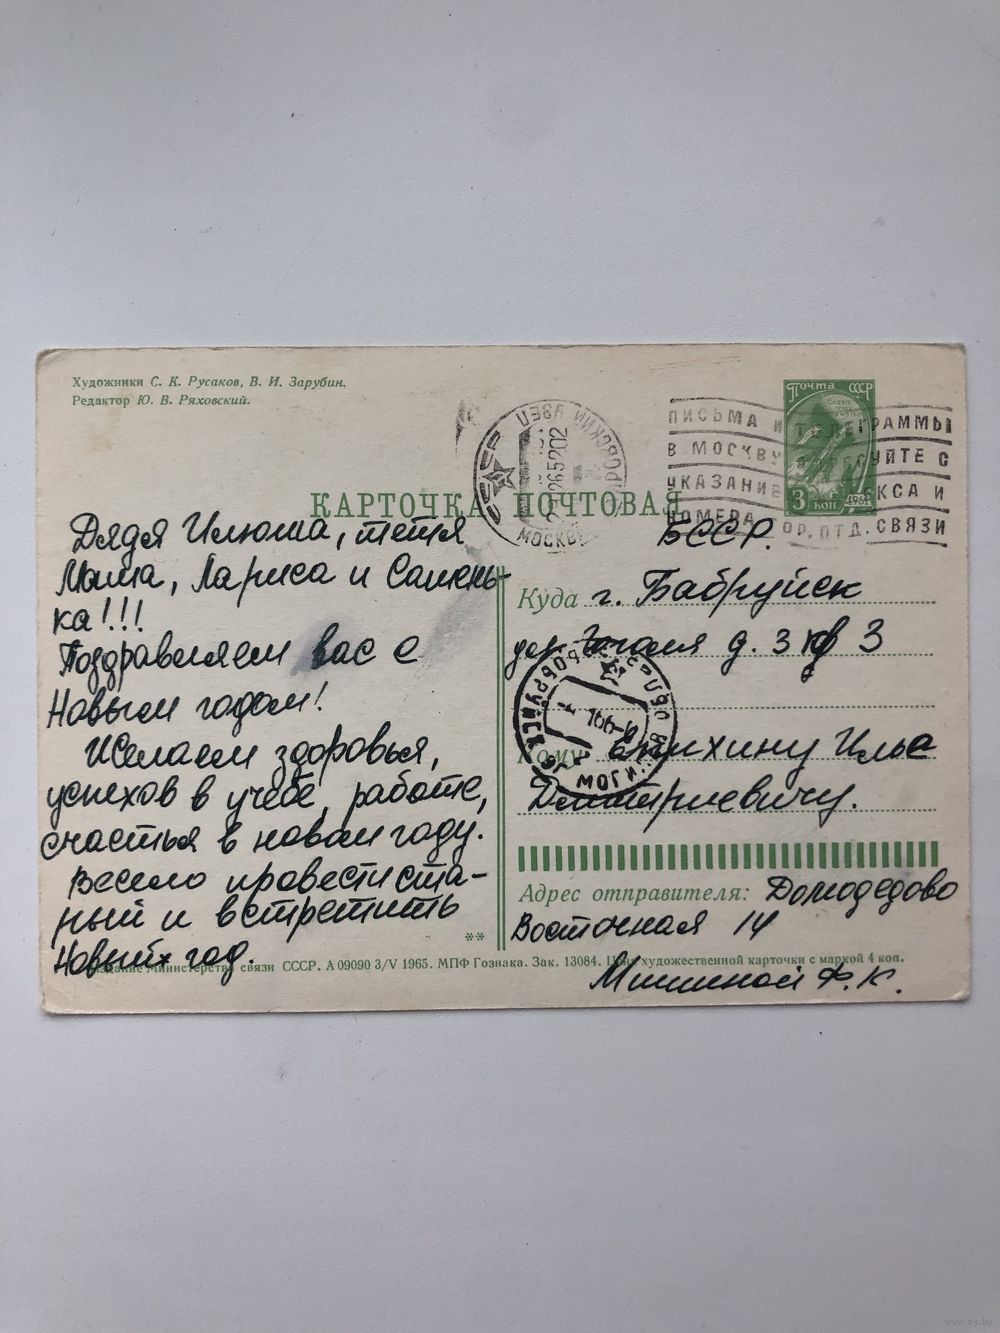 Художники С. К. Русаков, В. И. Зарубин.
Редактор Ю. В. Ряховский.
КАРТОЧКА ПОЧТОВАЯ
Дядя Илюша, тетя
Мома, Лариса и Сашень-
ка!!!
Поздравляем вас с
Новым годом!
Желаем здоровья,
успехов в учебе, работе,
счастья в новом году.
Весело провести ста-
рый и встретить
Новый год.
Почта СССР
3 коп
1961
ПИСЬМА И ТЕЛЕГРАММЫ
В МОСКВУ С
УКАЗАНИЕ КСА И
НОМЕРА ГОР. ОТД. СВЯЗИ
МОСКВА
БССР.
Куда г. Бабруйск
ул. Гоголя д. 3 кв 3
БОБРУЙСК
МОГИЛ
Кому Ильe
Дмитриевичу.
Адрес отправителя: Домодедово
Восточная 14
Мишиной Ф. К.
** Издание Министерства связи СССР. А 09090 3/V 1965. МПФ Гознака. Зак. 13084. Цена художественной карточки с маркой 4 коп.
www.ay.by